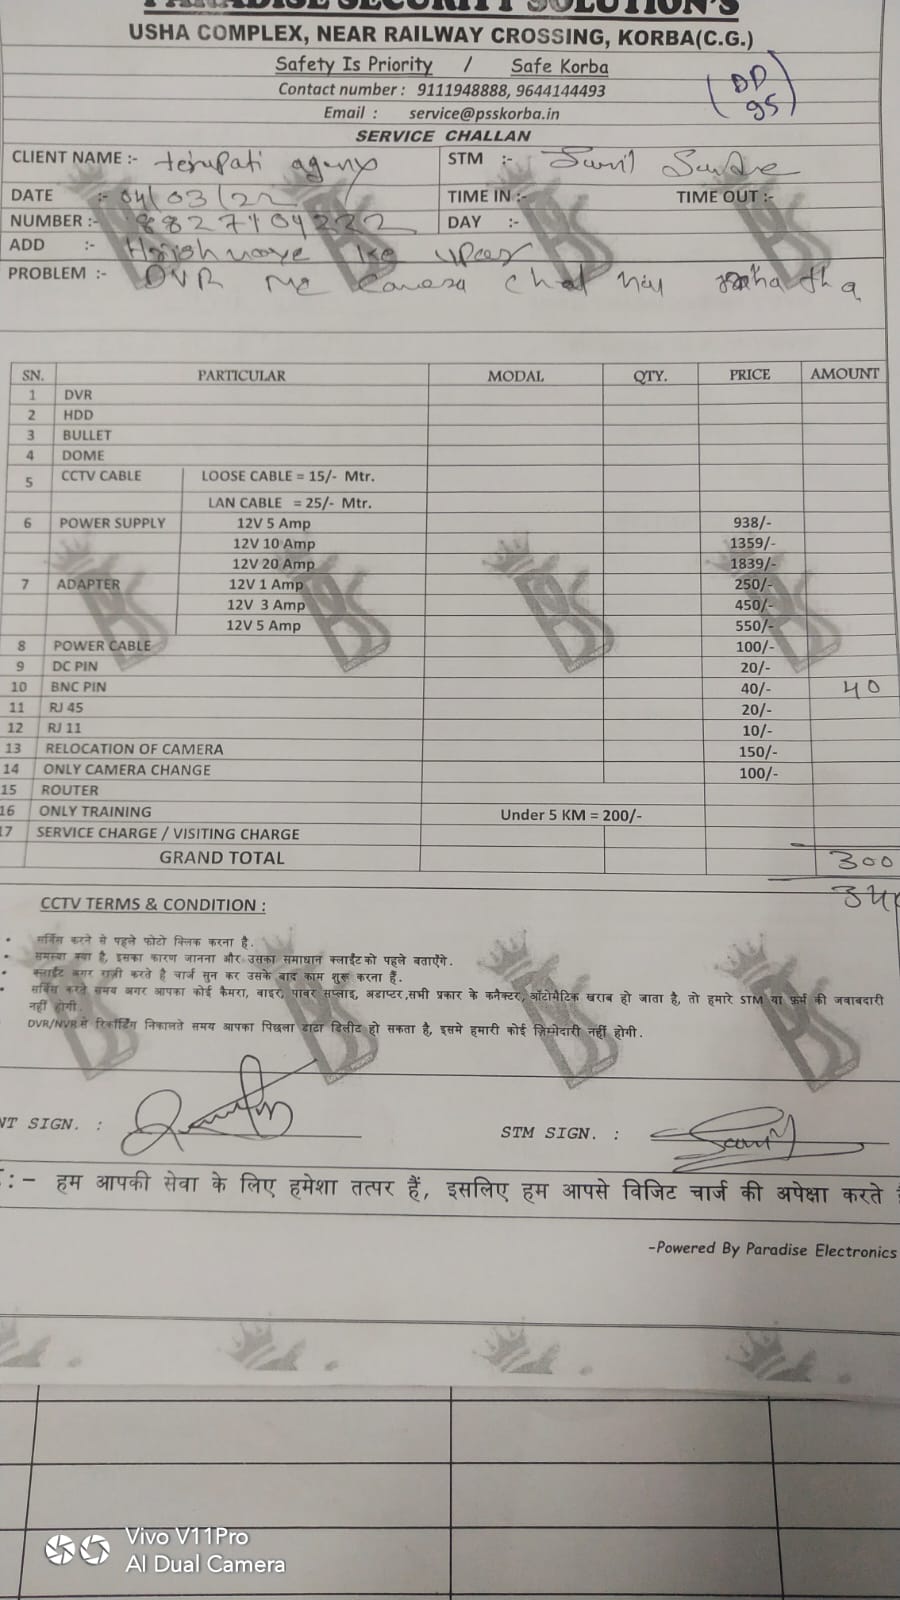 PARADISE SECURITY SOLUTION'S
USHA COMPLEX, NEAR RAILWAY CROSSING, KORBA(C.G.)
Safety Is Priority / Safe Korba
Contact number : 9111948888, 9644144493
Email : service@psskorba.in
DD
95
SERVICE CHALLAN
CLIENT NAME :- terupati agency STM :- Sunil
DATE :- 04/03/22 TIME IN :- TIME OUT :-
NUMBER :- 8827104222 DAY :-
ADD :- ke upar
PROBLEM :- DVR me camera chal tha
SN. PARTICULAR MODAL QTY. PRICE AMOUNT
1 DVR
2 HDD
3 BULLET
4 DOME
5 CCTV CABLE LOOSE CABLE = 15/- Mtr.
LAN CABLE = 25/- Mtr.
6 POWER SUPPLY 12V 5 Amp 938/-
12V 10 Amp 1359/-
12V 20 Amp 1839/-
7 ADAPTER 12V 1 Amp 250/-
12V 3 Amp 450/-
12V 5 Amp 550/-
8 POWER CABLE 100/-
9 DC PIN 20/-
10 BNC PIN 40/- 40
11 RJ 45 20/-
12 RJ 11 10/-
13 RELOCATION OF CAMERA 150/-
14 ONLY CAMERA CHANGE 100/-
15 ROUTER
16 ONLY TRAINING Under 5 KM = 200/-
17 SERVICE CHARGE / VISITING CHARGE
GRAND TOTAL 300
34
CCTV TERMS & CONDITION :
• सर्विस करने से पहले फोटो क्लिक करना है.
• समस्या क्या है, इसका कारण जानना और उसका समाधान क्लाईंट को पहले बताऐंगे.
• क्लाईंट अगर राजी करते है चार्ज सुन कर उसके बाद काम शुरू करना हैं.
• सर्विस करते समय अगर आपका कोई कैमरा, वाइर, पावर सप्लाइ, अडाप्टर,सभी प्रकार के कनैक्टर, ऑटोमैटिक खराब हो जाता है, तो हमारे STM या फ़र्म की जवाबदारी
नहीं होगी.
DVR/NVR से रिकॉर्डिंग निकालते समय आपका पिछला डाटा डिलीट हो सकता है, इसमे हमारी कोई ज़िम्मेदारी नहीं होगी.
NT SIGN. : STM SIGN. :
:- हम आपकी सेवा के लिए हमेशा तत्पर हैं, इसलिए हम आपसे विजिट चार्ज की अपेक्षा करते
-Powered By Paradise Electronics
Vivo V11Pro
AI Dual Camera